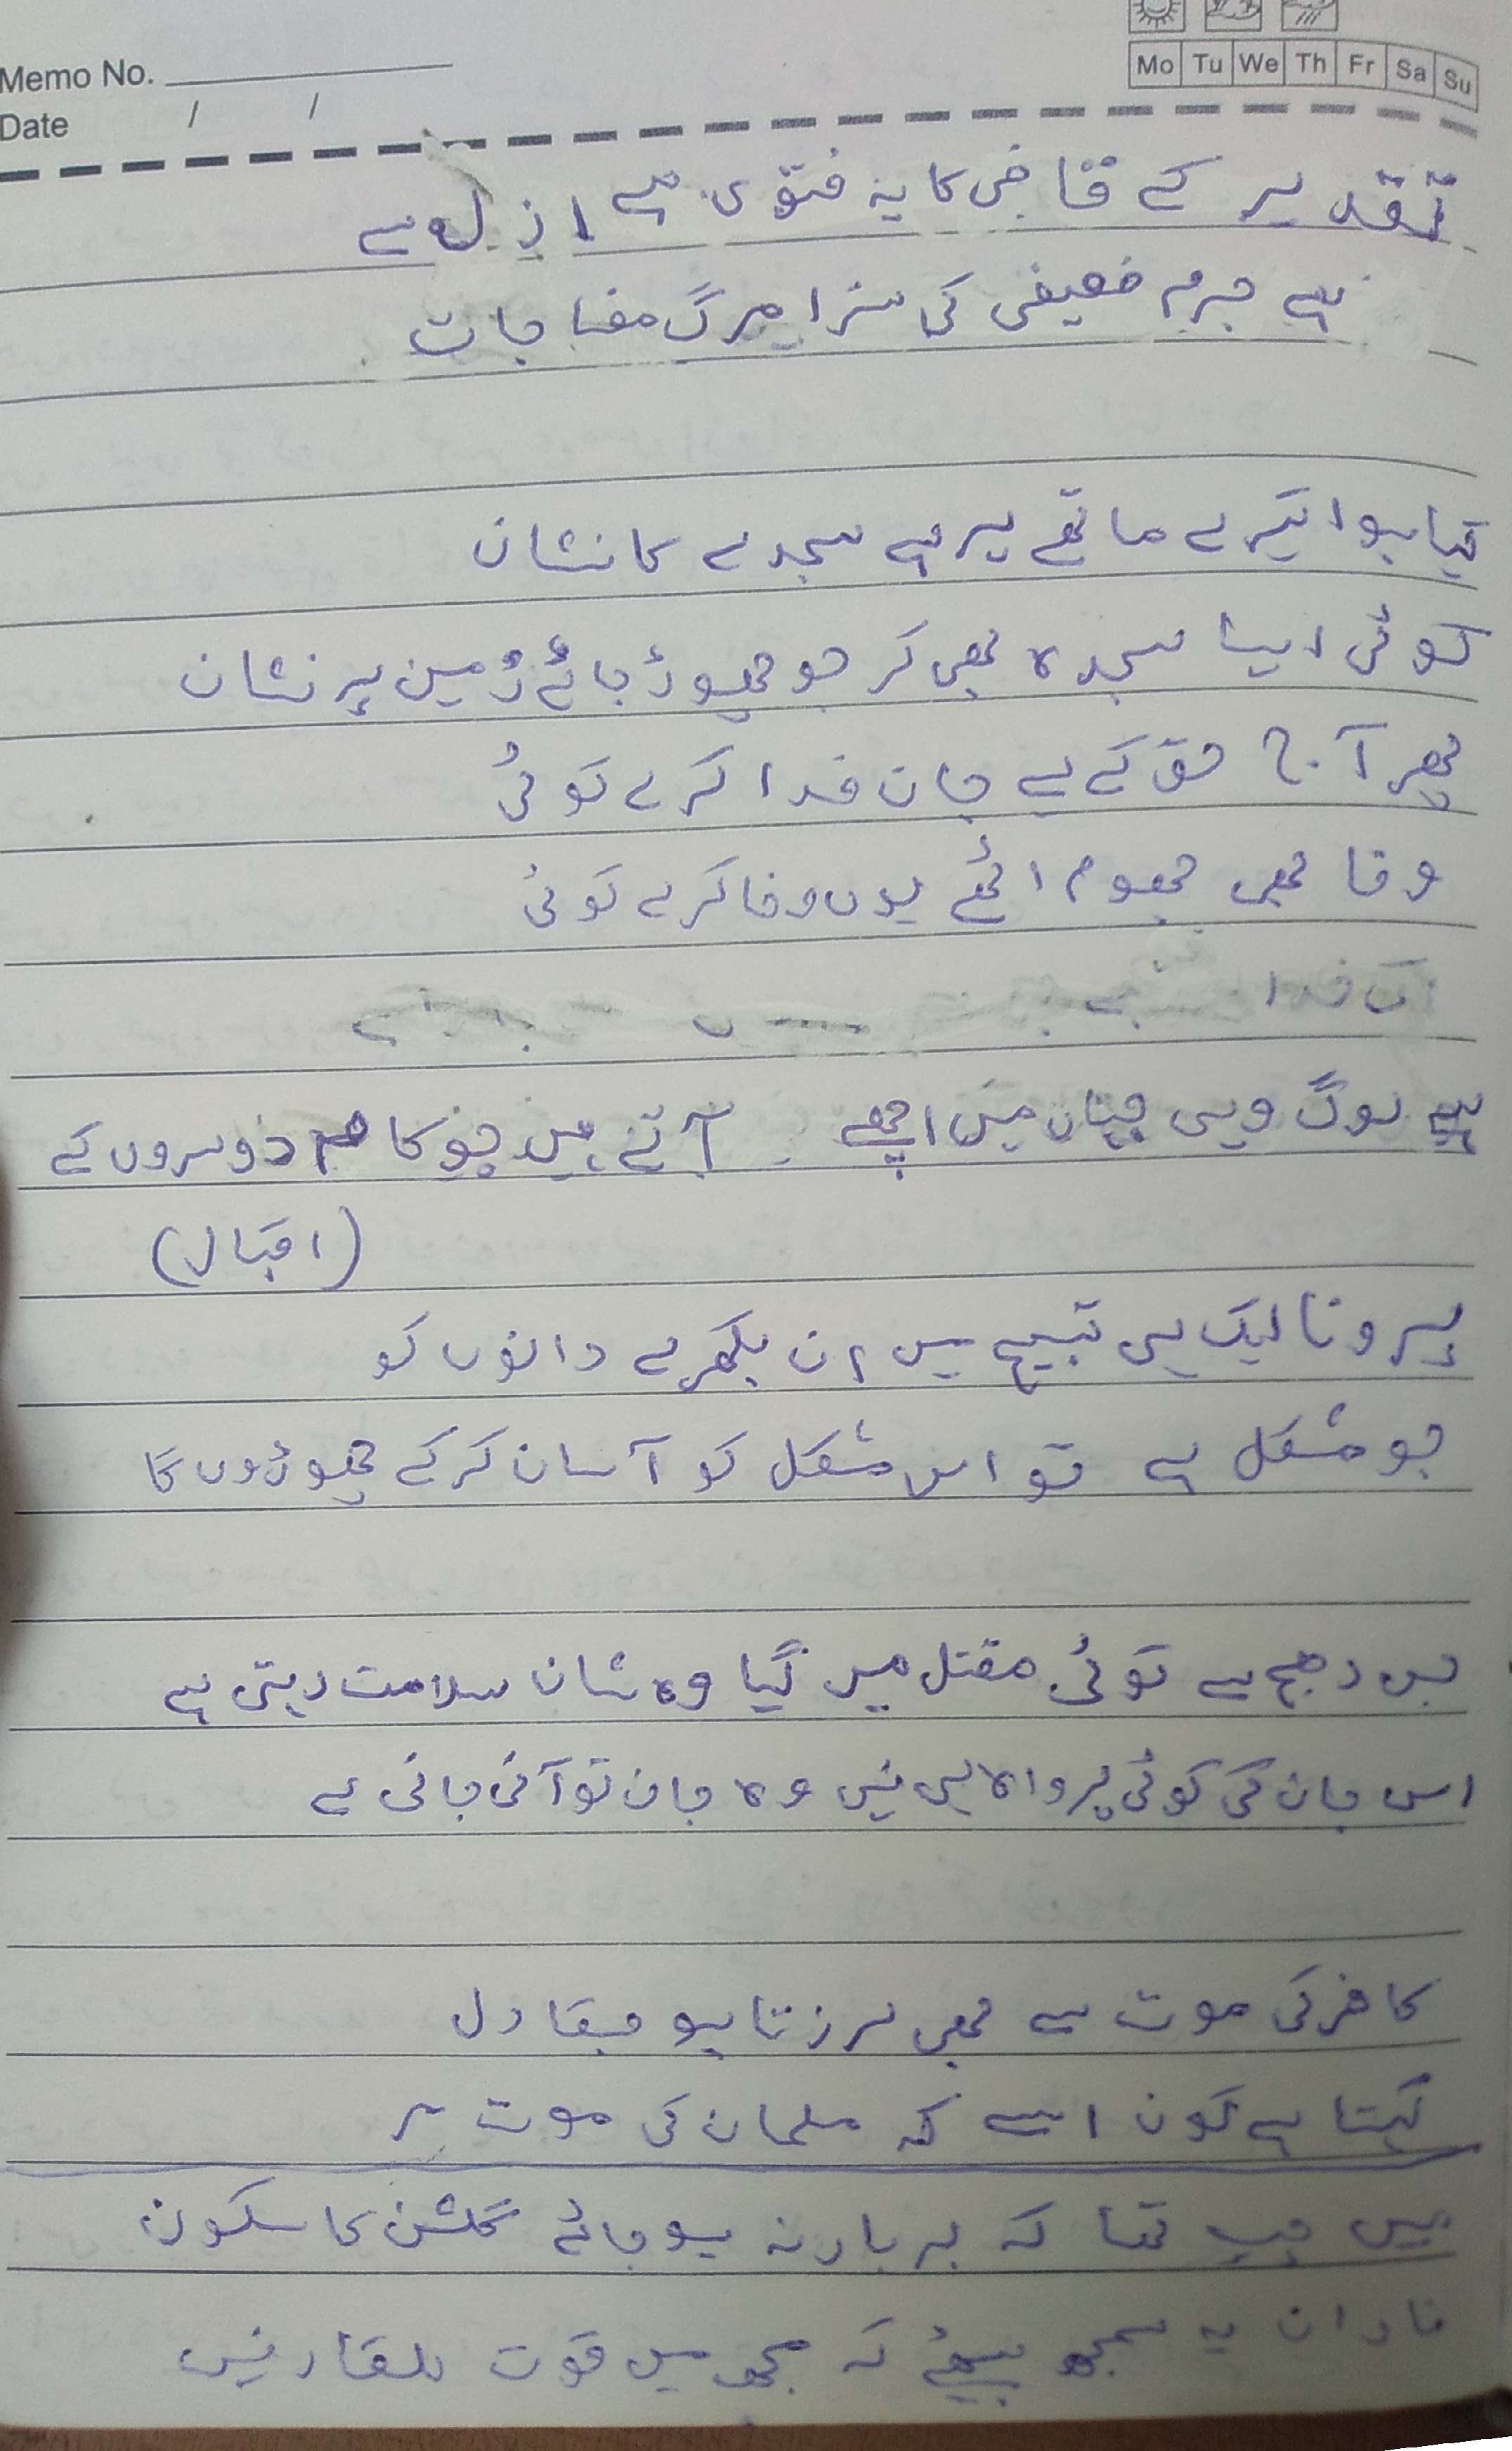 Mo Tu We Th Fr Sa Su
Memo No.
Date / /
تقدیر کے قاضی کا یہ فتوی ہے ازل سے
ہے جرم ضعیفی کی سزا مرگ مفاجات
کیا ہوا تیرے ماتھے پر ہے سجدے کا نشان
کوئی ایسا سجدہ بھی کر جو چھوڑ جائے زمین پر نشان
پھر آج حق کے لیے جان فدا کرے کوئی
وفا بھی جھوم اٹھے یوں وفا کرے کوئی
ہے لوگ وہی جہان میں اچھے آتے ہیں جو کام دوسروں کے
(اقبال)
پرونا ایک ہی تسبیح میں ان بکھرے دانوں کو
جو مشکل ہے تو اس مشکل کو آسان کر کے چھوڑوں گا
جس دھج سے کوئی مقتل میں گیا وہ شان سلامت رہتی ہے
اس جان کی کوئی پرواہ ہی نہیں وہ جان تو آنی جانی ہے
کافر کی موت سے بھی لرزتا ہو جسکا دل
کہتا ہے کون اسے کہ مسلمان کی موت مر
میں چپ تھا کہ برباد نہ ہو جائے گلشن کا سکون
نادان یہ سمجھ بیٹھے کہ مجھ میں قوت للکار نہیں